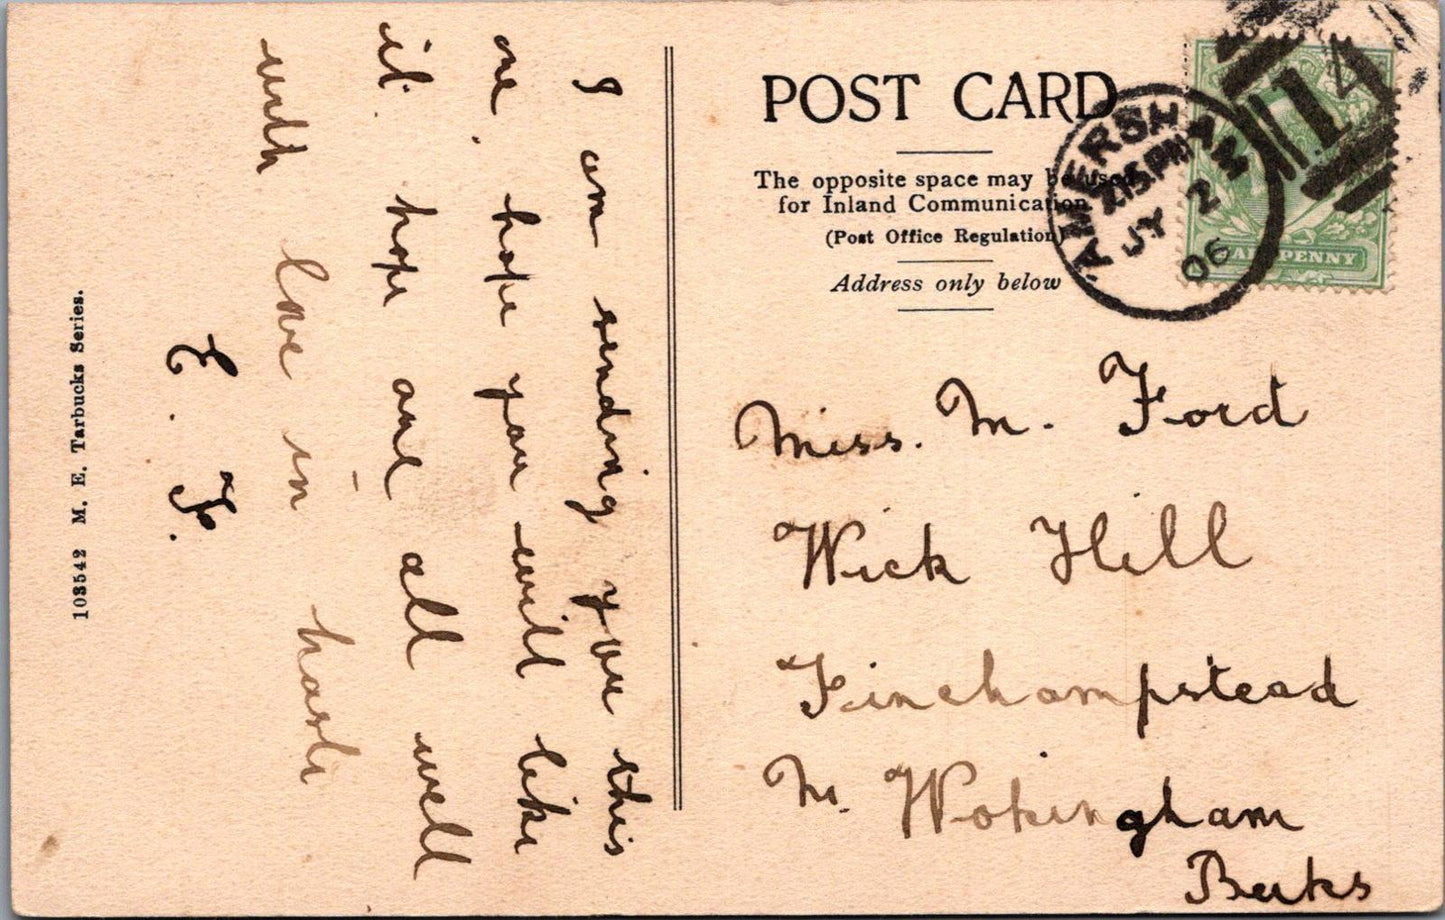 POST CARD
The opposite space may be used
for Inland Communication
(Post Office Regulation)
Address only below
AMERSHAM
2.15 PM
JY 2
06
14
HALFPENNY
Miss. M. Ford
Wick Hill
Finchampstead
Nr. Wokingham
Berks
I am sending you this
one hope you will like
it hope are all well
with love in haste
E. F.
103542 M. E. Tarbucks Series.